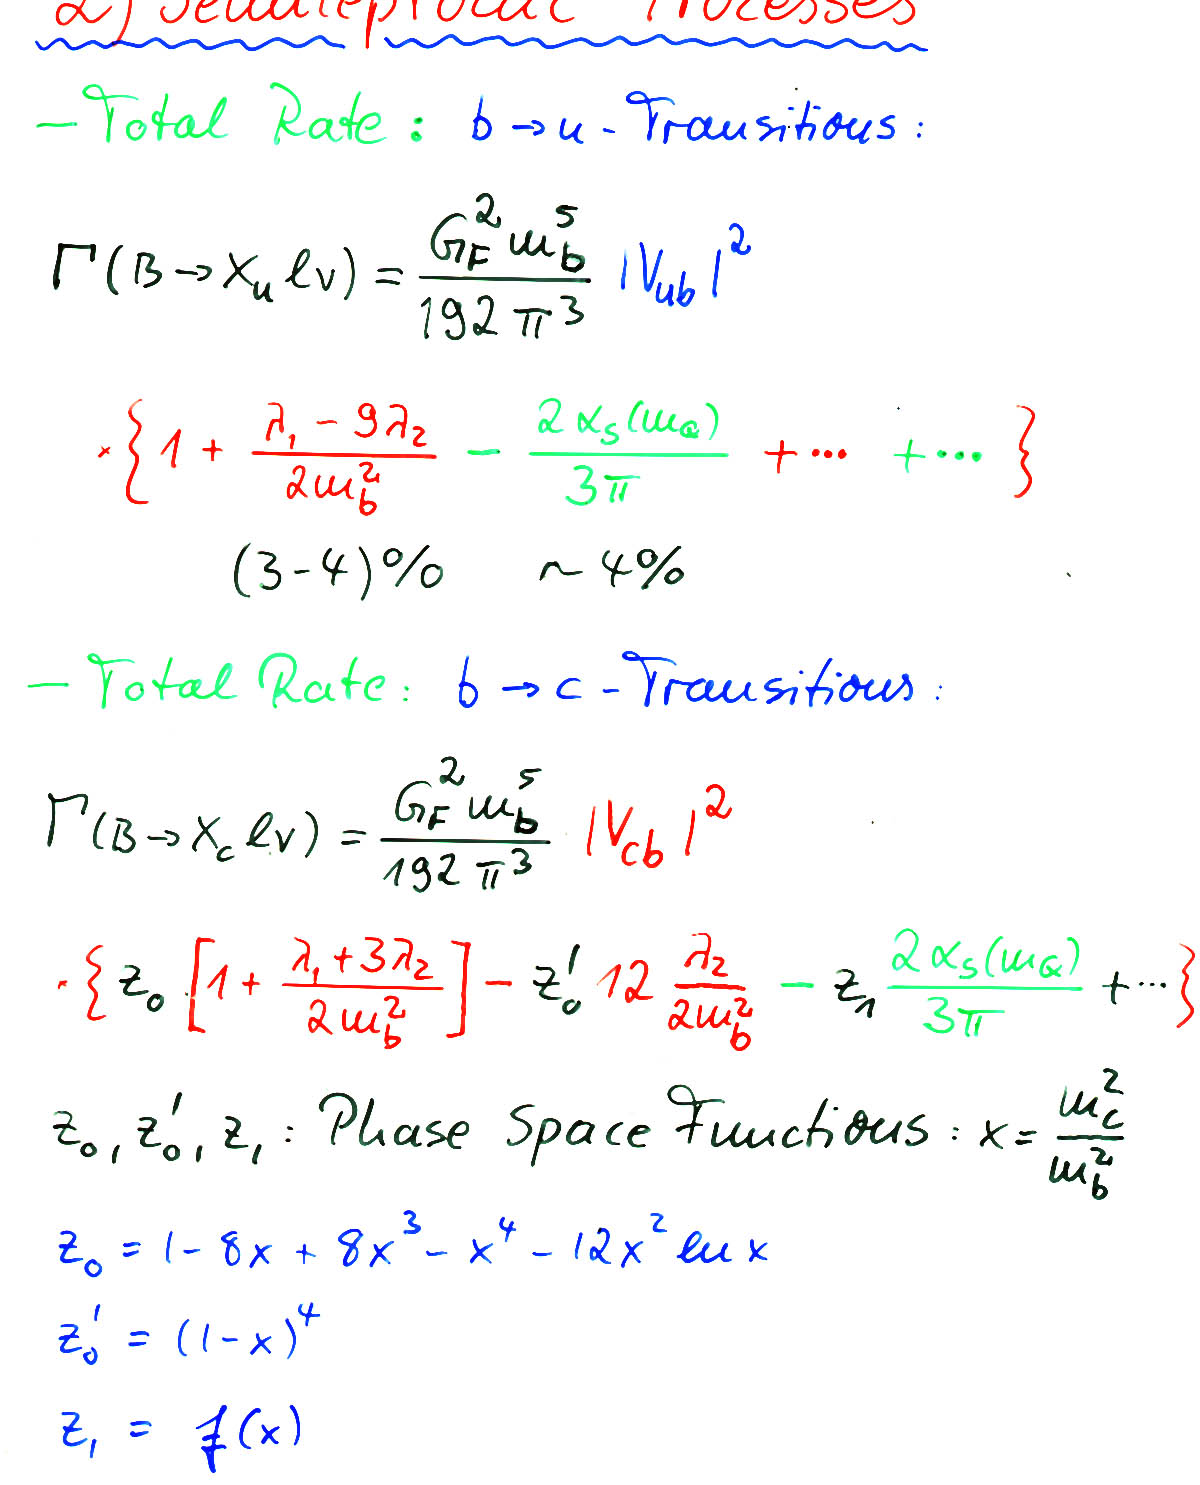 2) Semileptonic Processes
- Total Rate: b → u - Transitions:
Γ(B → X_u ℓν) = G_F^2 m_b^5 / 192 π^3 |V_ub|^2
· { 1 + (λ_1 - 9λ_2) / 2m_b^2 - 2α_s(m_Q) / 3π + ... + ... }
(3-4)% ~ 4%
- Total Rate: b → c - Transitions:
Γ(B → X_c ℓν) = G_F^2 m_b^5 / 192 π^3 |V_cb|^2
· { z_0 [ 1 + (λ_1 + 3λ_2) / 2m_b^2 ] - z_0' 12 λ_2 / 2m_b^2 - z_1 2α_s(m_Q) / 3π + ... }
z_0, z_0', z_1 : Phase Space Functions : x = m_c^2 / m_b^2
z_0 = 1 - 8x + 8x^3 - x^4 - 12x^2 ln x
z_0' = (1-x)^4
z_1 = f(x)